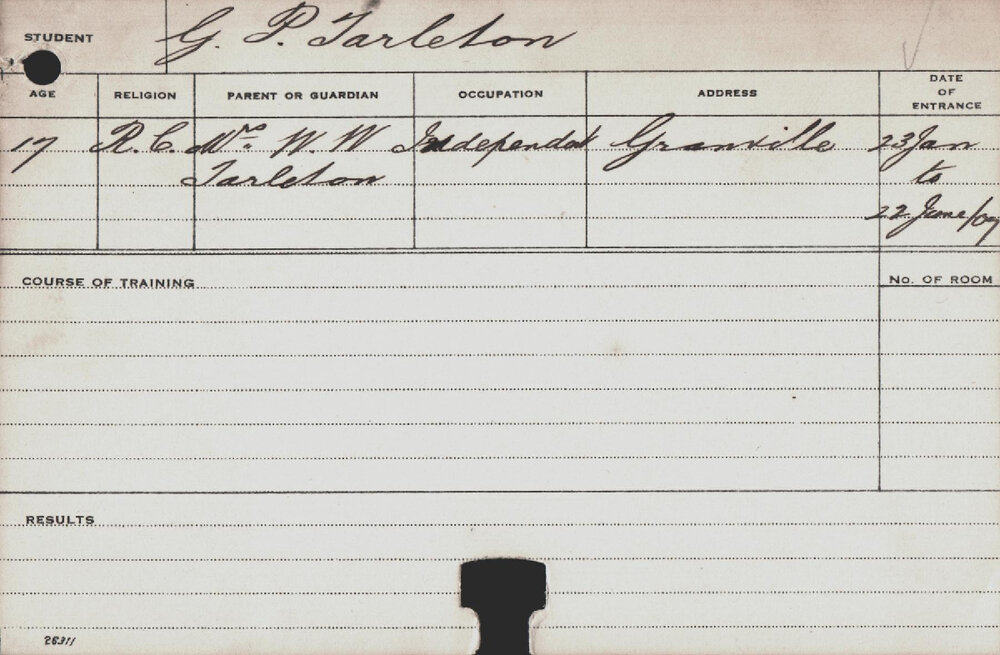 STUDENT G. P. Tarleton
AGE RELIGION PARENT OR GUARDIAN OCCUPATION ADDRESS DATE OF ENTRANCE
17 R.C. Mrs. W. W Independent Granville 23 Jan
Tarleton to
22 June/07
COURSE OF TRAINING No. OF ROOM
RESULTS
26311